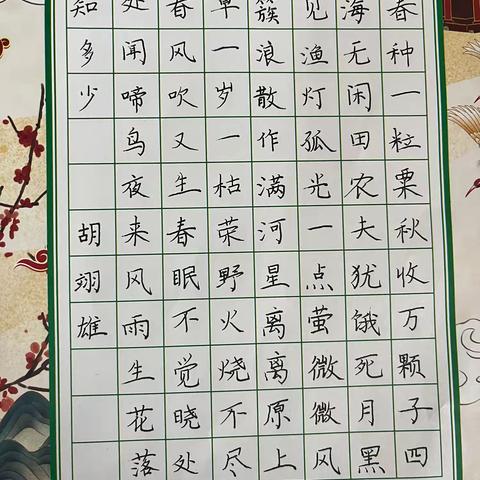 春种一粒粟秋收万颗子四
海无闲田农夫犹饿死月黑
见渔灯孤光一点萤微微风
簇浪散作满河星离离原上
草一岁一枯荣野火烧不尽
春风吹又生春眠不觉晓处
处闻啼鸟夜来风雨生花落
知多少 胡翊雄